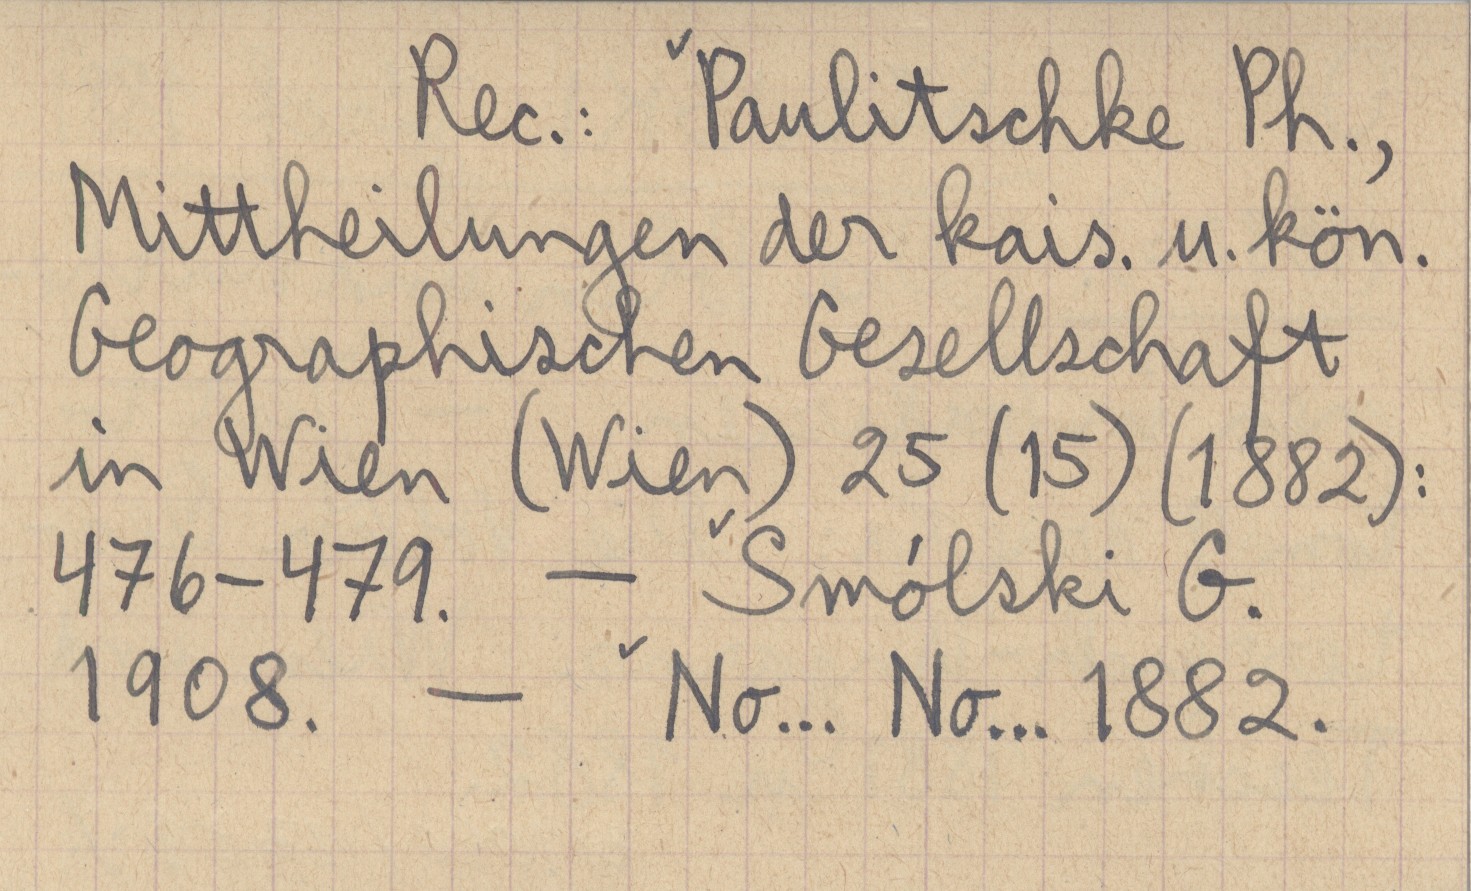 Rec.: ✓Paulitschke Ph.,
Mittheilungen der kais. u. kön.
Geographischen Gesellschaft
in Wien (Wien) 25 (15) (1882):
476-479. — ✓Smólski G.
1908. — ✓No... No... 1882.